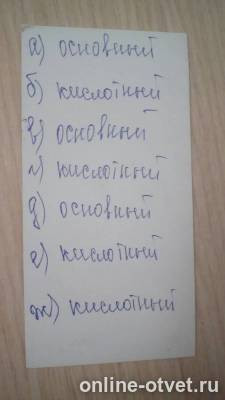 а) основний
б) кислотний
в) основний
г) кислотний
д) основний
е) кислотний
ж) кислотний
online-otvet.ru